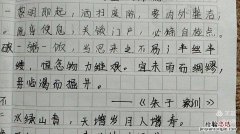 黎明即起，洒扫庭除，要内外整洁；
既昏便息，关锁门户，必亲自检点。
一粥一饭，当思来之不易；半丝半
缕，恒念物力维艰。宜未雨而绸缪，
毋临渴而掘井。
——《朱子家训》
增岁月人增寿。